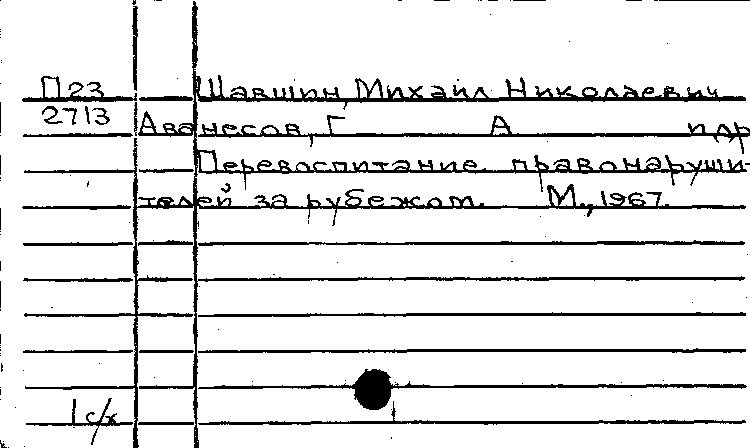 П23 Шавшин, Михаил Николаевич
2713 Аванесов, Г А и др
Перевоспитание правонаруши-
телей за рубежом. М., 1967.
1 с/х